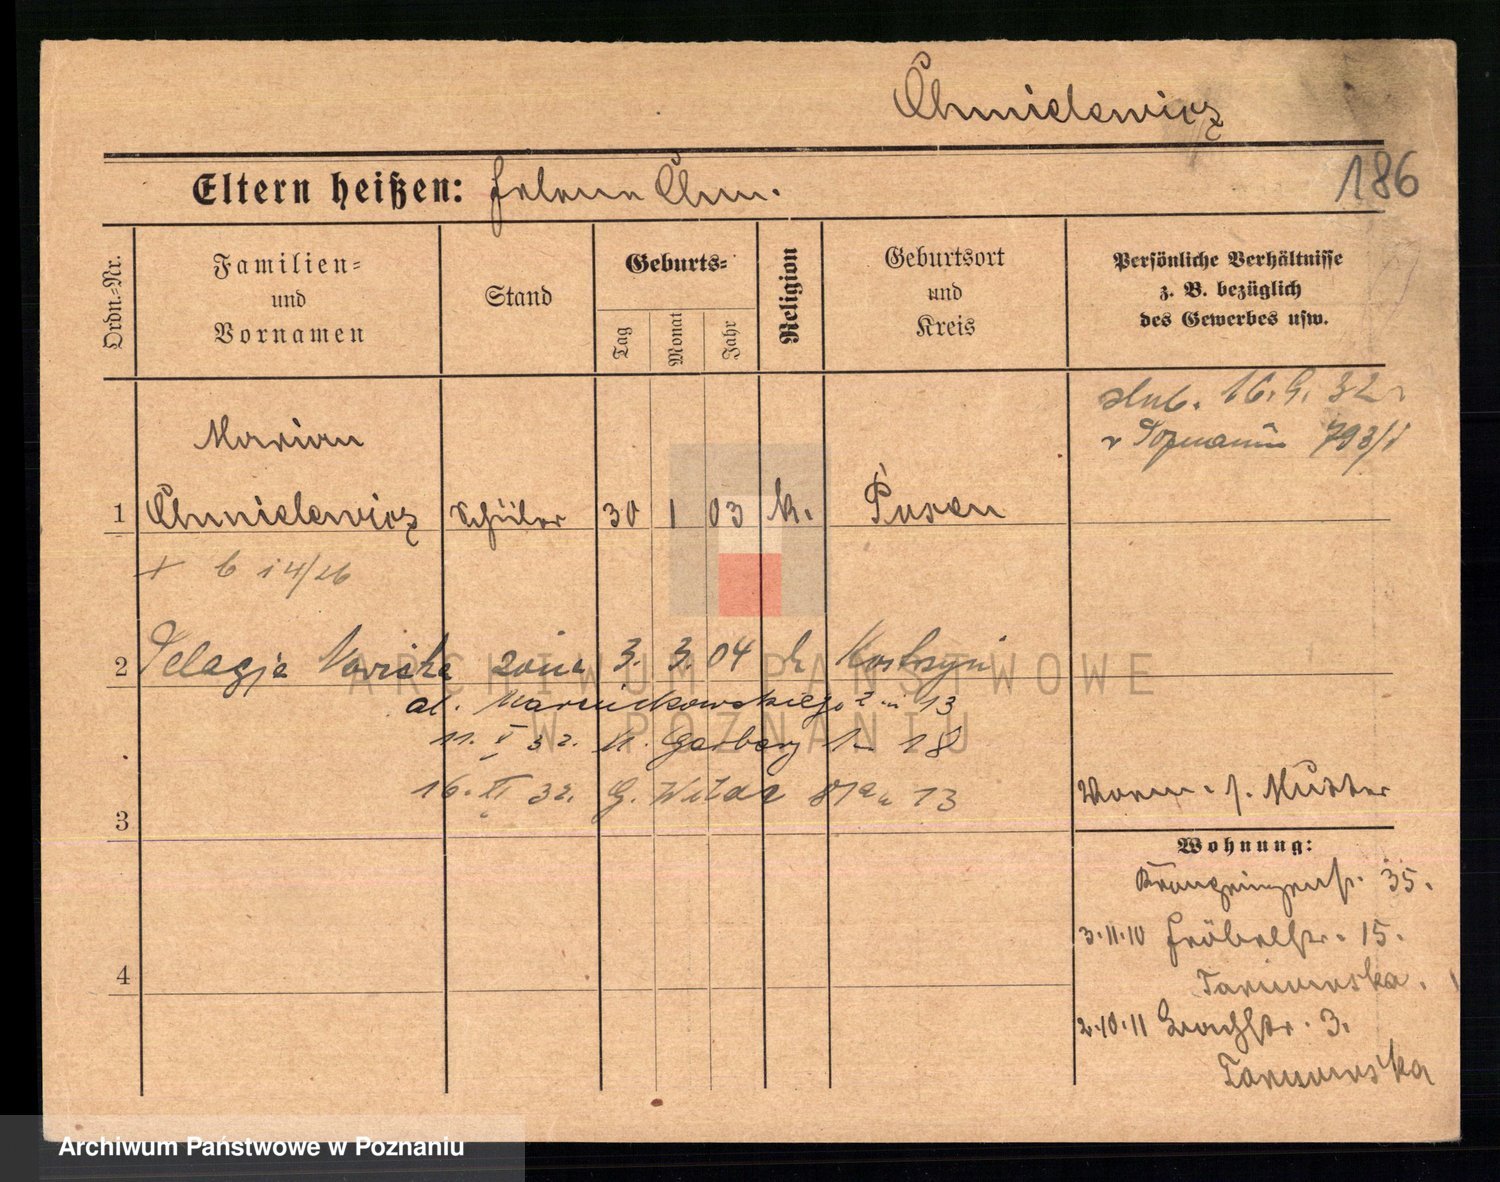 Chmielewicz
186
Eltern heißen: Helene Chm.
Ordn.-Nr.
Familien- und Vornamen
Stand
Geburts-
Tag
Monat
Jahr
Religion
Geburtsort und Kreis
Persönliche Verhältnisse z. B. bezüglich des Gewerbes usw.
ślub. 16.9.32 r
w Poznaniu 793/I
Marian
1 Chmielewicz Schüler 30 1 03 k. Posen
+ 6 14/26
2 Pelagja żona 3. 3. 04 k Kostrzyn
al. Marcinkowskiego 2 m 13
11. V 32. Garbary 18
16. XI 32. G. Wilda 81a m 13
3
Mutter
Wohnung:
Kronprinzenstr. 35.
3.11.10 Fröbelstr. 15.
2.10.11 Bachstr. 3.
4
ARCHIWUM PAŃSTWOWE
W POZNANIU
Archiwum Państwowe w Poznaniu